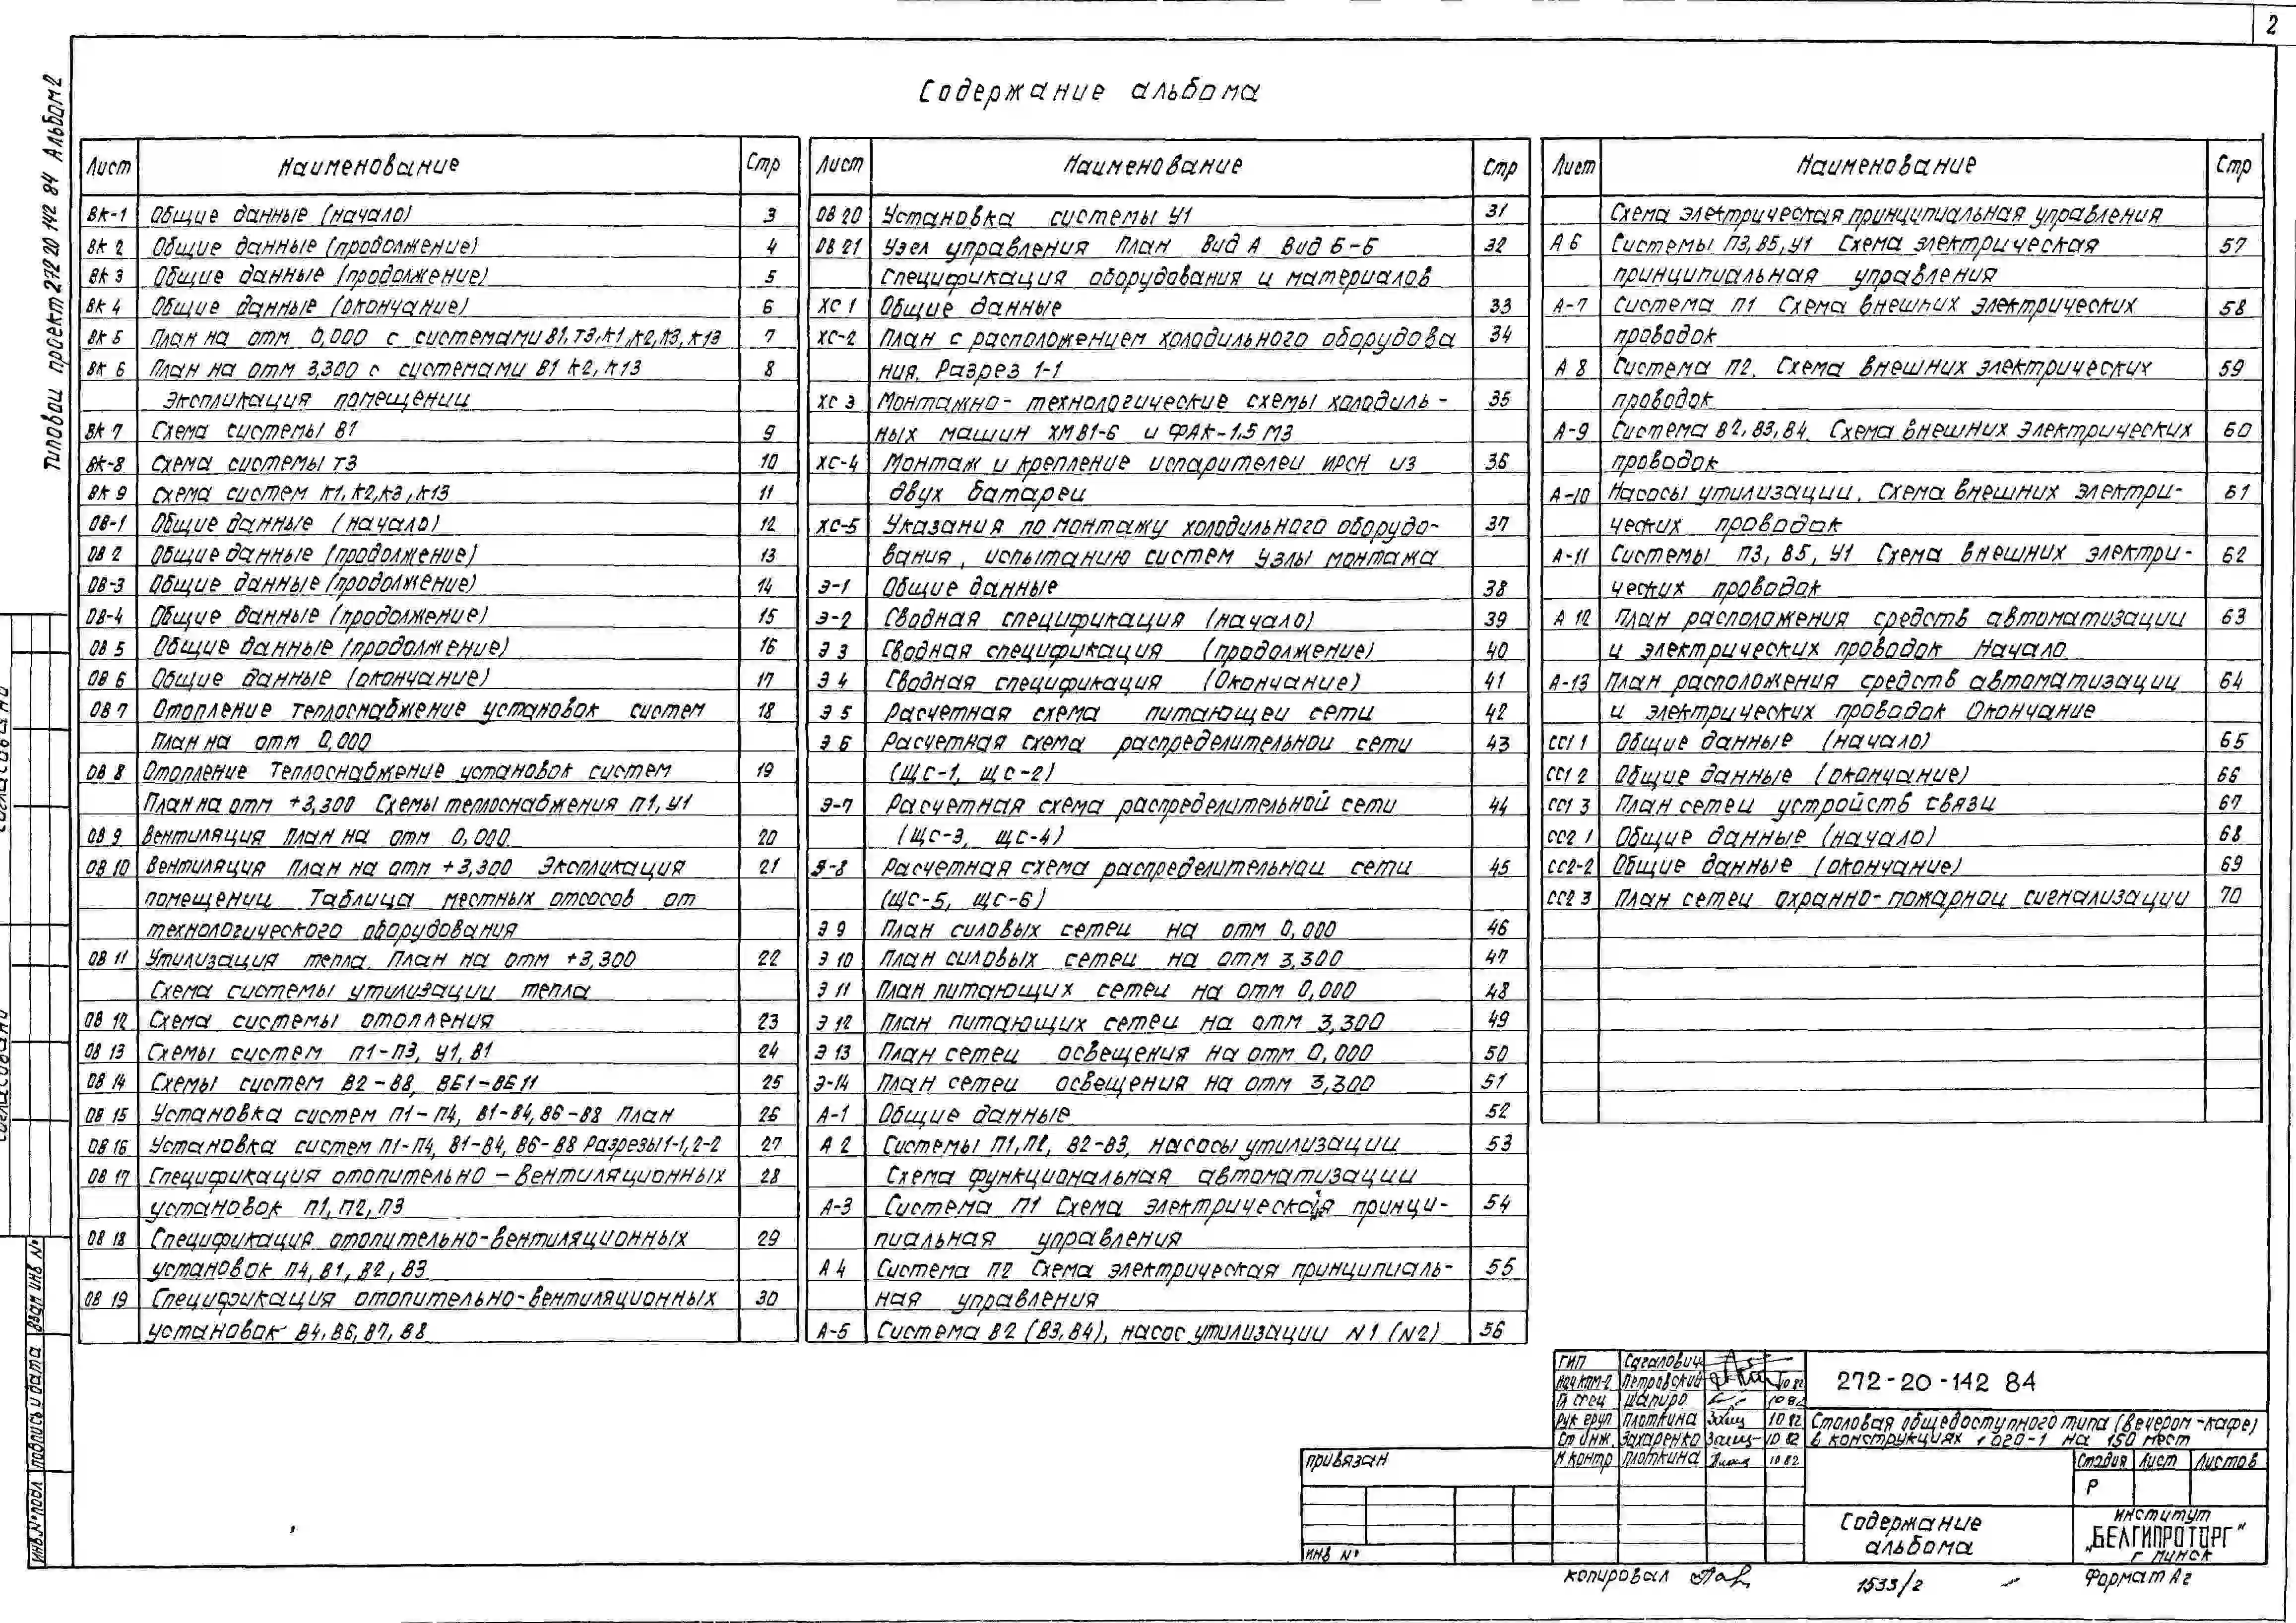 2
Типовой проект 272 20 142 84 Альбом 2
Содержание альбома
Лист Наименование Стр
ВК-1 Общие данные (начало) 3
ВК 2 Общие данные (продолжение) 4
ВК 3 Общие данные (продолжение) 5
ВК 4 Общие данные (окончание) 6
ВК 5 План на отм 0,000 с системами В1, Т3, К1, К2, К3, К13 7
ВК 6 План на отм 3,300 с системами В1 К2, К13 8
Экспликация помещении
ВК 7 Схема системы В1 9
ВК-8 Схема системы Т3 10
ВК 9 Схема систем К1, К2, К3, К13 11
ОВ-1 Общие данные (начало) 12
ОВ 2 Общие данные (продолжение) 13
ОВ-3 Общие данные (продолжение) 14
ОВ-4 Общие данные (продолжение) 15
ОВ 5 Общие данные (продолжение) 16
ОВ 6 Общие данные (окончание) 17
ОВ 7 Отопление теплоснабжение установок систем 18
План на отм 0,000
ОВ 8 Отопление Теплоснабжение установок систем 19
План на отм +3,300 Схемы теплоснабжения П1, У1
ОВ 9 Вентиляция План на отм 0,000. 20
ОВ 10 Вентиляция План на отм +3,300 Экспликация 21
помещении Таблица местных отсосов от
технологического оборудования
ОВ 11 Утилизация тепла. План на отм +3,300 22
Схема системы утилизации тепла
ОВ 12 Схема системы отопления 23
ОВ 13 Схемы систем П1-П3, У1, В1 24
ОВ 14 Схемы систем В2-В8, ВЕ1-ВЕ11 25
ОВ 15 Установка систем П1-П4, В1-В4, В6-В8 План 26
ОВ 16 Установка систем П1-П4, В1-В4, В6-В8 Разрезы 1-1, 2-2 27
ОВ 17 Спецификация отопительно-вентиляционных 28
установок П1, П2, П3
ОВ 18 Спецификация отопительно-вентиляционных 29
установок П4, В1, В2, В3
ОВ 19 Спецификация отопительно-вентиляционных 30
установок В4, В6, В7, В8
Лист Наименование Стр
ОВ 20 Установка системы У1 31
ОВ 21 Узел управления План Вид А Вид Б-Б 32
Спецификация оборудования и материалов
ХС 1 Общие данные 33
ХС-2 План с расположением холодильного оборудова 34
ния. Разрез 1-1
ХС 3 Монтажно-технологические схемы холодиль- 35
ных машин ХМВ1-6 и ФАК-1,5 М3
ХС-4 Монтаж и крепление испарителеи ИРСН из 36
двух батареи
ХС-5 Указания по монтажу холодильного оборудо- 37
вания, испытанию систем Узлы монтажа
Э-1 Общие данные 38
Э-2 Сводная спецификация (начало) 39
Э 3 Сводная спецификация (продолжение) 40
Э 4 Сводная спецификация (Окончание) 41
Э 5 Расчетная схема питающеи сети 42
Э 6 Расчетная схема распределительнои сети 43
(ЩС-1, ЩС-2)
Э-7 Расчетная схема распределительной сети 44
(ЩС-3, ЩС-4)
Э-8 Расчетная схема распределительнои сети 45
(ЩС-5, ЩС-6)
Э 9 План силовых сетеи на отм 0,000 46
Э 10 План силовых сетеи на отм 3,300 47
Э 11 План питающих сетеи на отм 0,000 48
Э 12 План питающих сетеи на отм 3,300 49
Э 13 План сетеи освещения на отм 0,000 50
Э-14 План сетеи освещения на отм 3,300 51
А-1 Общие данные 52
А 2 Системы П1, П2, В2-В3, насосы утилизации 53
Схема функциональная автоматизации
А-3 Система П1 Схема электрическая принци- 54
пиальная управления
А 4 Система П2 Схема электрическая принципиаль- 55
ная управления
А-5 Система В2 (В3, В4), насос утилизации N1 (N2) 56
Лист Наименование Стр
Схема электрическая принципиальная управления
А 6 Системы П3, В5, У1 Схема электрическая 57
принципиальная управления
А-7 Система П1 Схема внешних электрических 58
проводок
А 8 Система П2. Схема внешних электрических 59
проводок
А-9 Система В2, В3, В4. Схема внешних электрических 60
проводок
А-10 Насосы утилизации. Схема внешних электри- 61
ческих проводок
А-11 Системы П3, В5, У1 Схема внешних электри- 62
ческих проводок
А 12 План расположения средств автоматизации 63
и электрических проводок Начало
А-13 План расположения средств автоматизации 64
и электрических проводок Окончание
СС1 1 Общие данные (начало) 65
СС1 2 Общие данные (окончание) 66
СС1 3 План сетеи устройств связи 67
СС2 1 Общие данные (начало) 68
СС2-2 Общие данные (окончание) 69
СС2 3 План сетеи охранно-пожарнои сигнализации 70
Согласовано
Согласовано
Взам инв №
Подпись и дата
Инв. № подл
Привязан
Инв №
ГИП Сагалович
Нач КПМ-2 Петровский 10 82
Гл спец Шапиро 10 82
Рук груп Плоткина 10 82
Ст инж. Захаренко 10 82
Н контр Плоткина 10 82
272-20-142 84
Столовая общедоступного типа (вечером-кафе)
в конструкциях 1 020-1 на 150 мест
Стадия Лист Листов
Р
Содержание
альбома
институт
„БЕЛГИПРОТОРГ"
г Минск
копировал
1533/2
Формат А2